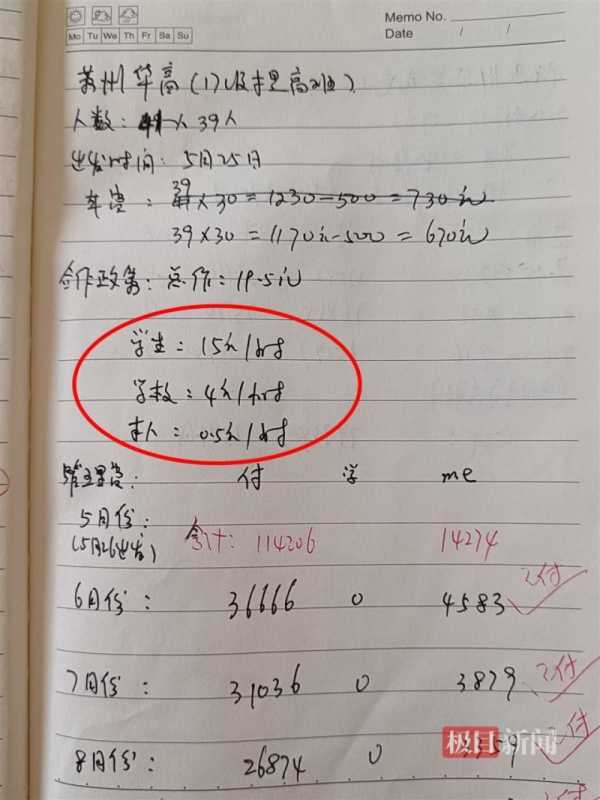 Memo No.
Mo Tu We Th Fr Sa Su
Date / /
苏州华高(17级 高班)
人数: 41人 39人
出发时间: 5月25日
39
车费: 41×30=1230-500=730元
39×30=1170元-500=670元
合作政策: 总价: 19.5元
学生: 15元/小时
学校: 4元/小时
本人: 0.5元/小时
管理费: 付 学 me
5月份:
(5月26出发) 合计: 114206 14274
6月份: 36666 0 4583 已付
7月份: 31036 0 3879 已付
8月份: 26874 0 59 已付
极目新闻